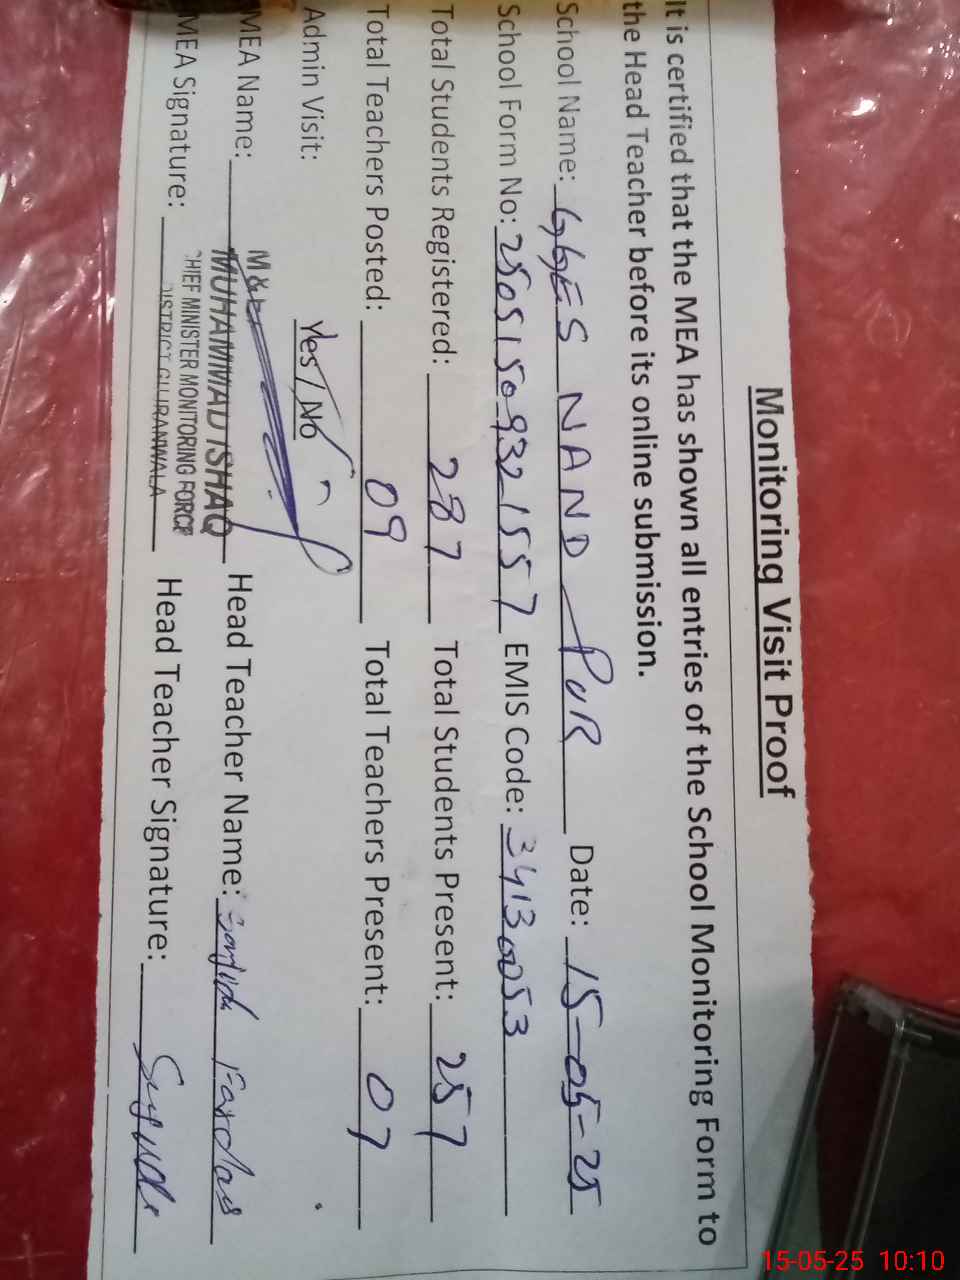 Monitoring Visit Proof
It is certified that the MEA has shown all entries of the School Monitoring Form to
the Head Teacher before its online submission.
School Name: GGES NAND PUR Date: 15-05-25
School Form No: 25051509321557 EMIS Code: 34130053
Total Students Registered: 287 Total Students Present: 257
Total Teachers Posted: 09 Total Teachers Present: 07
Admin Visit: Yes / No
MEA Name: MUHAMMAD ISHAQ Head Teacher Name:
CHIEF MINISTER MONITORING FORCE
MEA Signature: Head Teacher Signature:
DISTRICT GUJRANWALA
15-05-25 10:10